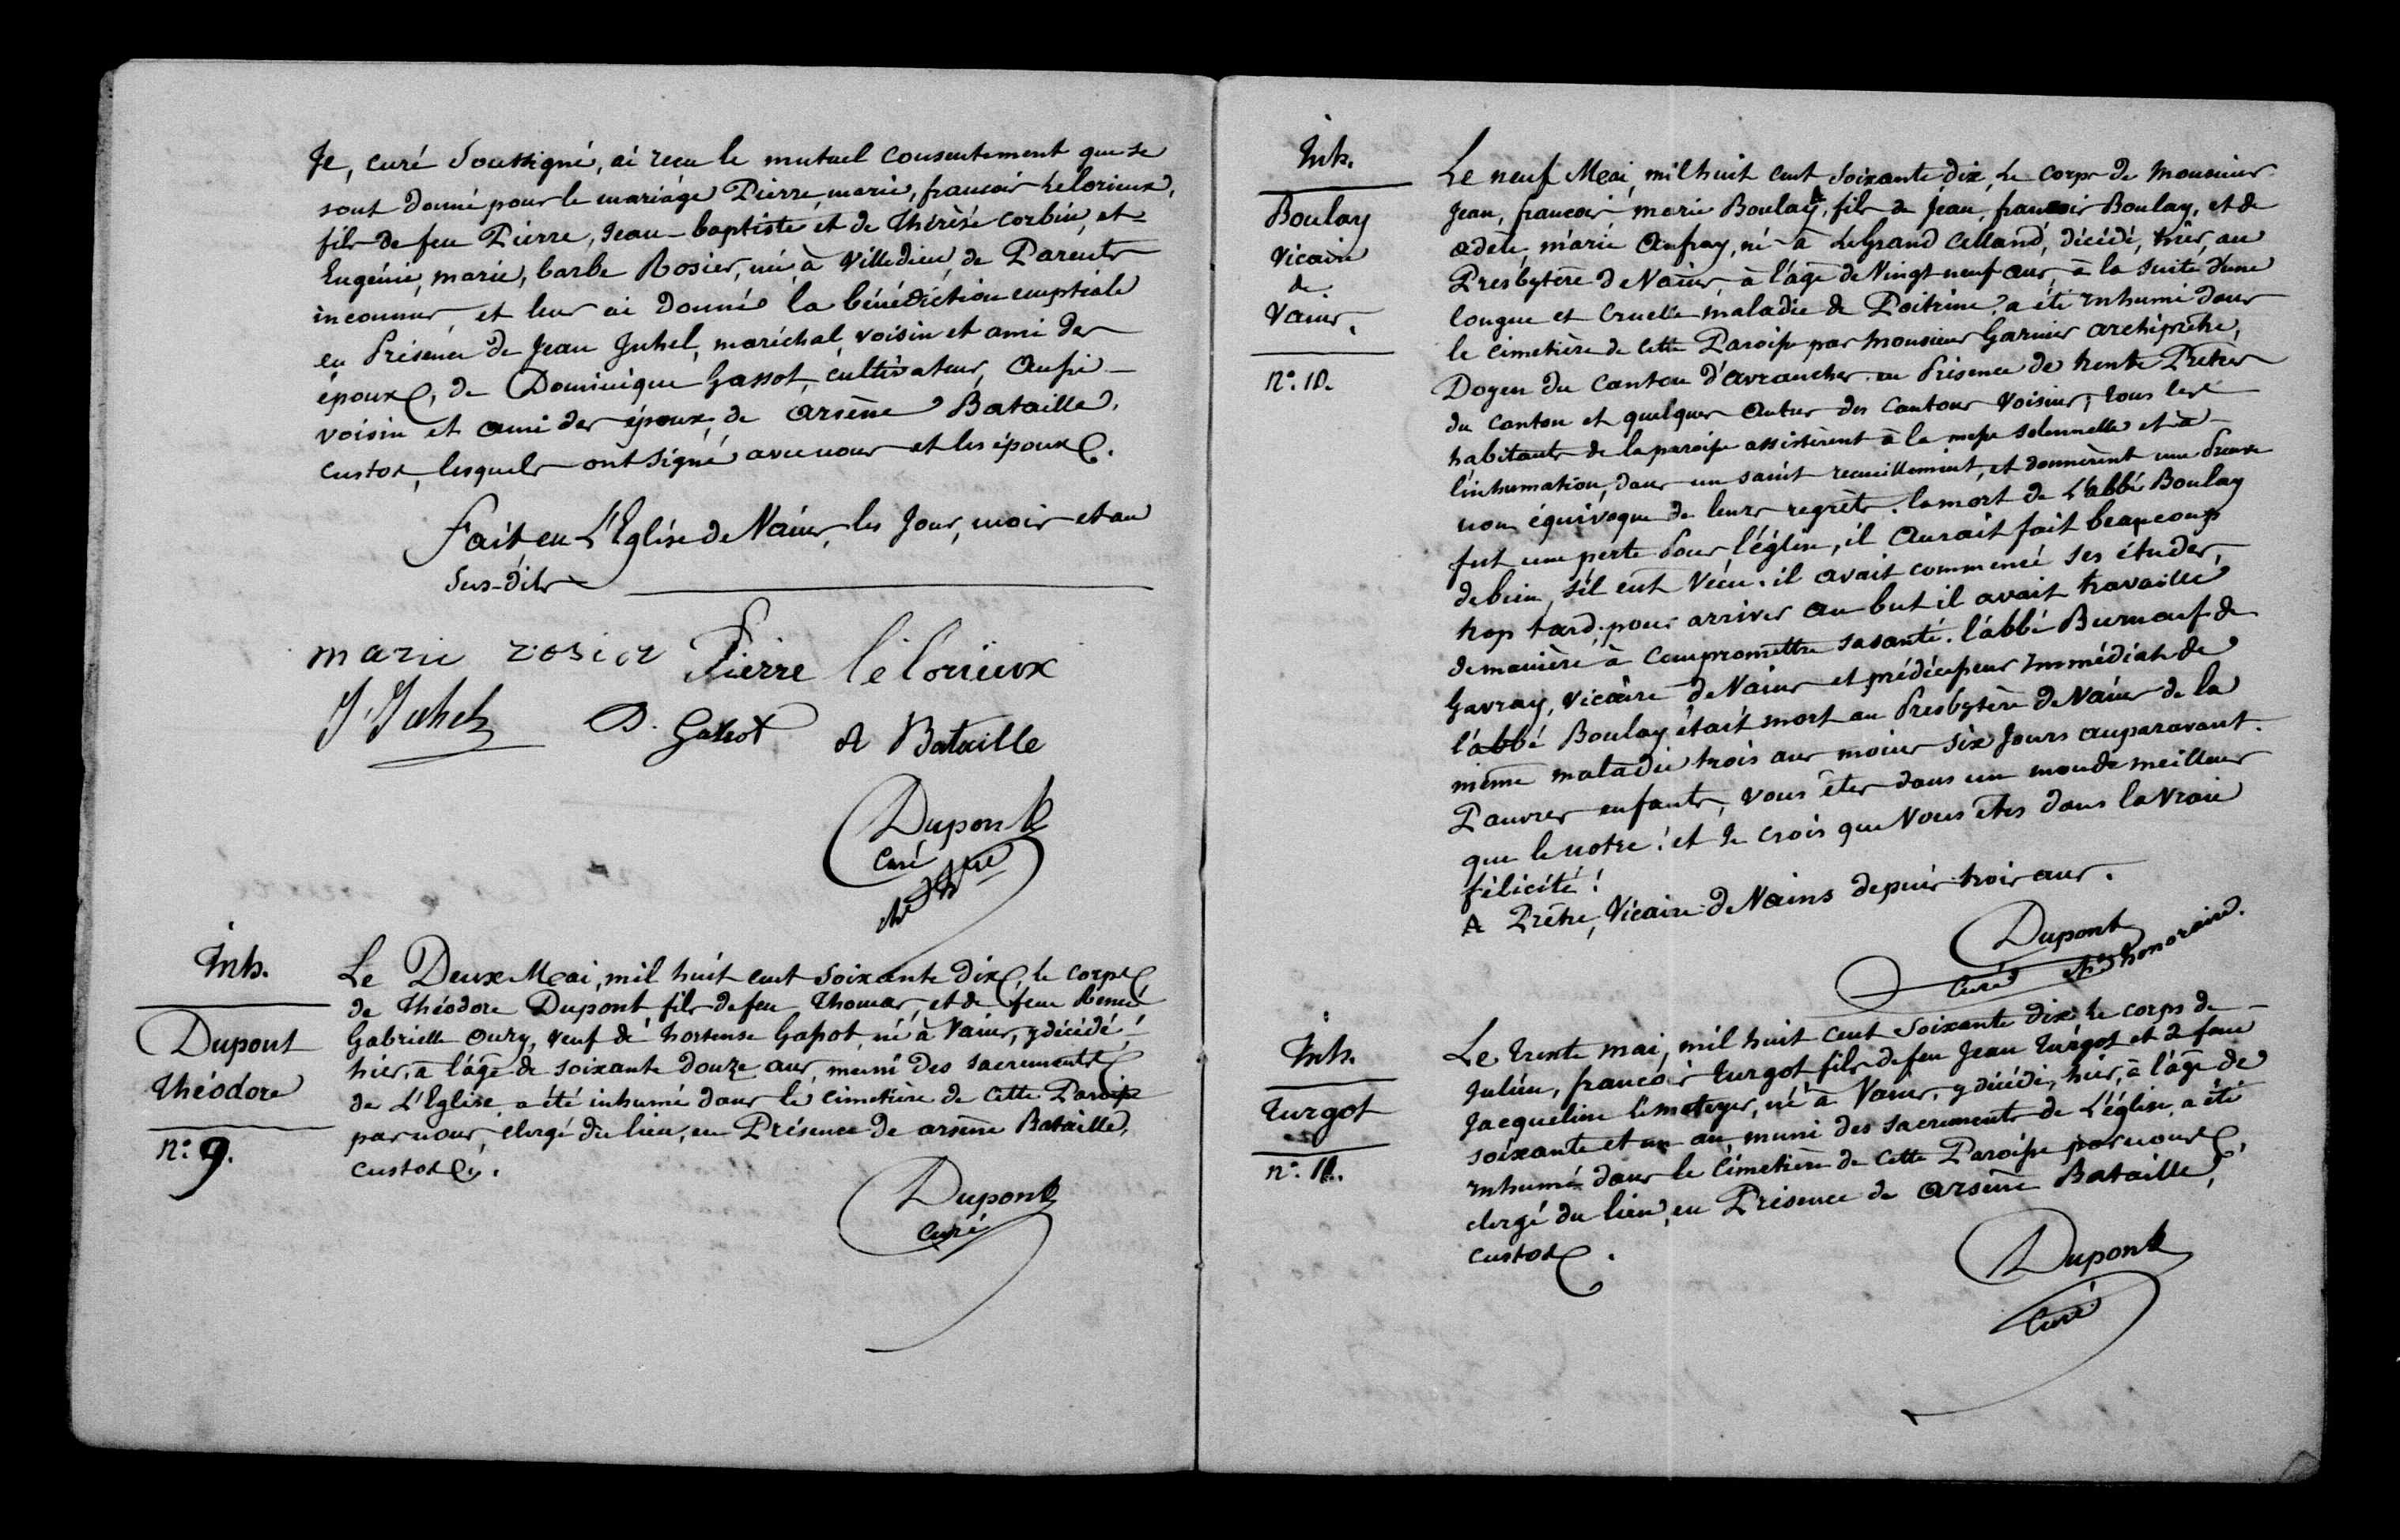 Je, curé Soussigné, ai reçu le mutuel consentement que se
sont donné pour le mariage Pierre, marie, francois Lelorieux,
fils de feu Pierre, Jean-baptiste et de Thérèse Corbin, et
Eugénie, marie, barbe Rosier, née à Villedieu, de Parents
inconnus, et leur ai donné la bénédiction nuptiale
en Présence de Jean Juhel, maréchal, voisin et ami des
époux, de Dominique Gassot, cultivateur, Aussi
voisin et ami des époux, de Arsène Bataille,
custos, lesquels ont signé avec nous et les époux.
Fait, en L'Eglise de Vains, les Jour, mois et an
Sus-dits
marie rosier Pierre lelorieux
J. Juhel D. Gassot A Bataille
Dupont
Curé
Inh.
Dupont
Théodore
n°: 9.
Le Deux Mai, mil huit cent soixante dix, le corps
de Théodore Dupont, fils de feu Thomas, et de feue Renée
Gabrielle Oury, veuf de hortense Gassot, né à Vains, y décédé,
hier, à l'âge de soixante douze ans, muni des sacrements
de L'Eglise, a été inhumé dans le cimetière de cette Paroisse
par nous, clergé du lieu, en Présence de arsène Bataille,
custos.
Dupont
Curé
Inh.
Boulay
Vicaire
de
Vains.
n°: 10.
Le neuf Mai, mil huit cent soixante dix, Le corps de Monsieur
Jean, francois marie Boulay, fils de Jean, francois Boulay, et de
adèle, marie Aufray, né à LeGrand Celland, décédé, hier, au
Presbytère de Vains, à l'âge de Vingt neuf ans, à la suite d'une
longue et Cruelle maladie de Poitrine, a été Inhumé dans
le cimetière de cette Paroisse par Monsieur Garnier archiprêtre,
Doyen du Canton d'avranches. en Présence de trente Prêtres
du canton et quelques Autres des Cantons Voisins; tous les
habitants de la paroisse assistèrent à la messe solennelle et à
l'inhumation, dans un saint recueillement, et donnèrent une Preuve
non équivoque de leurs regrèts. la mort de L'abbé Boulay
fut une perte Pour l'église, il Aurait fait beaucoup
de bien, s'il eut Vécu. il avait commencé ses études,
trop tard; pour arriver au but il avait travaillé
de manière à compromettre sa santé. l'abbé Burnouf de
Gavray, Vicaire de Vains et prédécesseur Immédiat de
l'abbé Boulay était mort au Presbytère de Vains de la
même maladie trois ans moins six Jours auparavant.
Pauvres enfants, vous êtes dans un monde meilleur
que le notre! et Je crois que Vous êtes dans la vraie
félicité!
A Prêtre, Vicaire de Vains depuis trois ans.
Dupont
Curé ch. honoraire.
Inh.
Turgot
n°: 11.
Le trente mai, mil huit cent soixante dix, Le corps de
Julien, francois Turgot fils de feu Jean Turgot et de feue
Jacqueline Lemetayer, né à Vains, y décédé, hier, à l'âge de
soixante et un an, muni des sacrements de L'église, a été
Inhumé dans le Cimetière de cette Paroisse par nous,
clergé du lieu, en Présence de Arsène Bataille,
custos.
Dupont
Curé